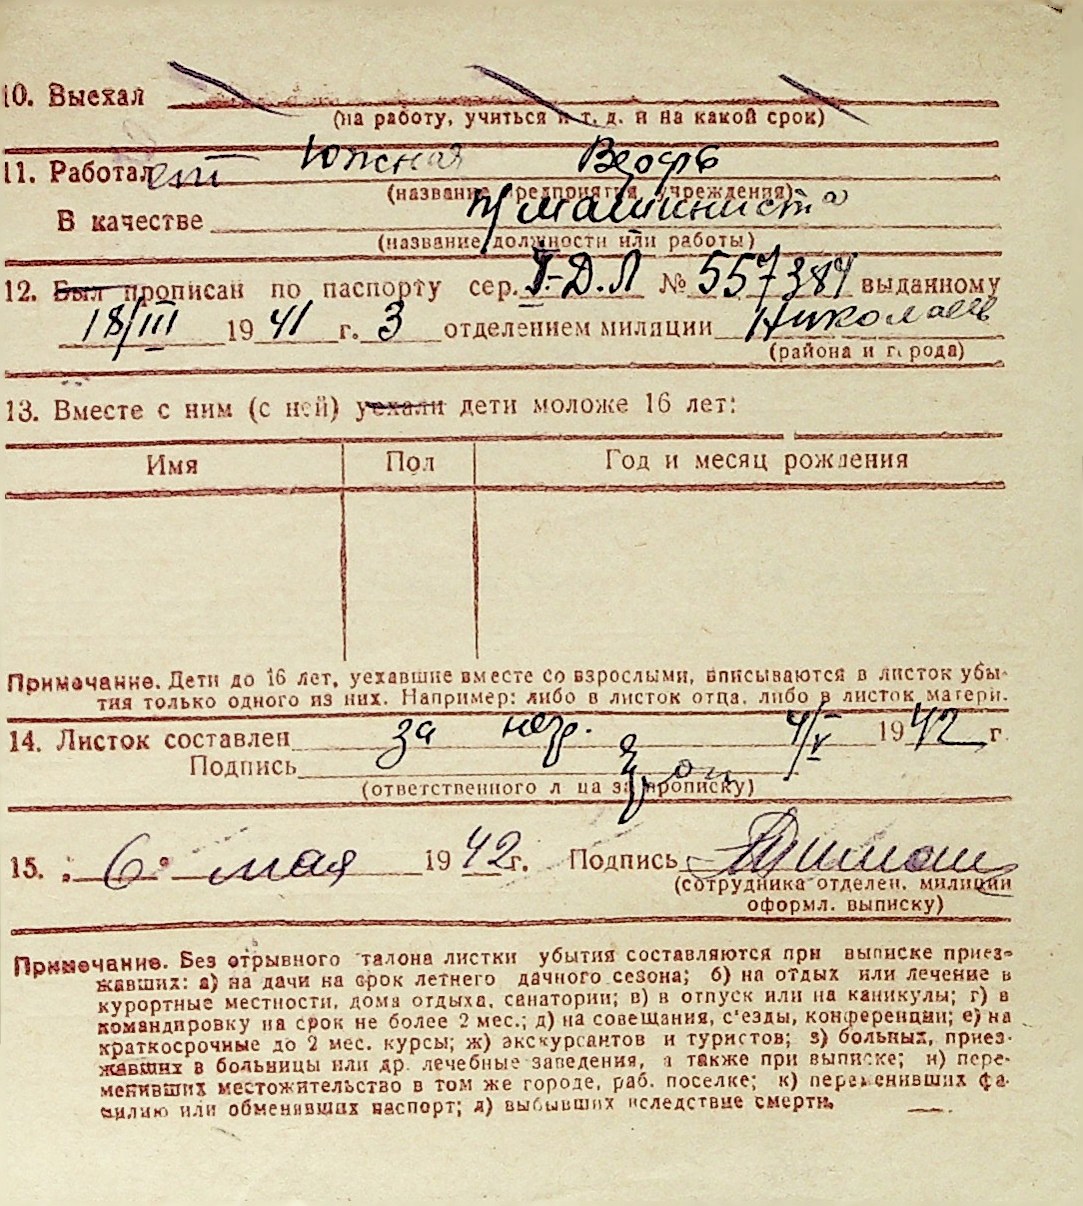 10. Выехал
(на работу, учиться и т. д. и на какой срок)
Южная Верфь
11. Работает
(название предприятия, учреждения)
В качестве машиниста
(название должности или работы)
12. Был прописан по паспорту сер. I-Д.Л № 557384 выданному
18/III 1941 г. 3 отделением милиции Николаев
(района и города)
13. Вместе с ним (с ней) уехали дети моложе 16 лет:
Имя Пол Год и месяц рождения
Примечание. Дети до 16 лет, уехавшие вместе со взрослыми, вписываются в листок убы-
тия только одного из них. Например: либо в листок отца, либо в листок матери.
14. Листок составлен за 4/V 1942 г.
Подпись
(ответственного лица за прописку)
15. 6 мая 1942 г. Подпись
(сотрудника отделен. милиции
оформл. выписку)
Примечание. Без отрывного талона листки убытия составляются при выписке приез-
жавших: а) на дачи на срок летнего дачного сезона; б) на отдых или лечение в
курортные местности, дома отдыха, санатории; в) в отпуск или на каникулы; г) в
командировку на срок не более 2 мес.; д) на совещания, с'езды, конференции; е) на
краткосрочные до 2 мес. курсы; ж) экскурсантов и туристов; з) больных, приез-
жавших в больницы или др. лечебные заведения, а также при выписке; и) пере-
менивших местожительство в том же городе, раб. поселке; к) переменивших фа-
милию или обменявших паспорт; л) выбывших вследствие смерти.